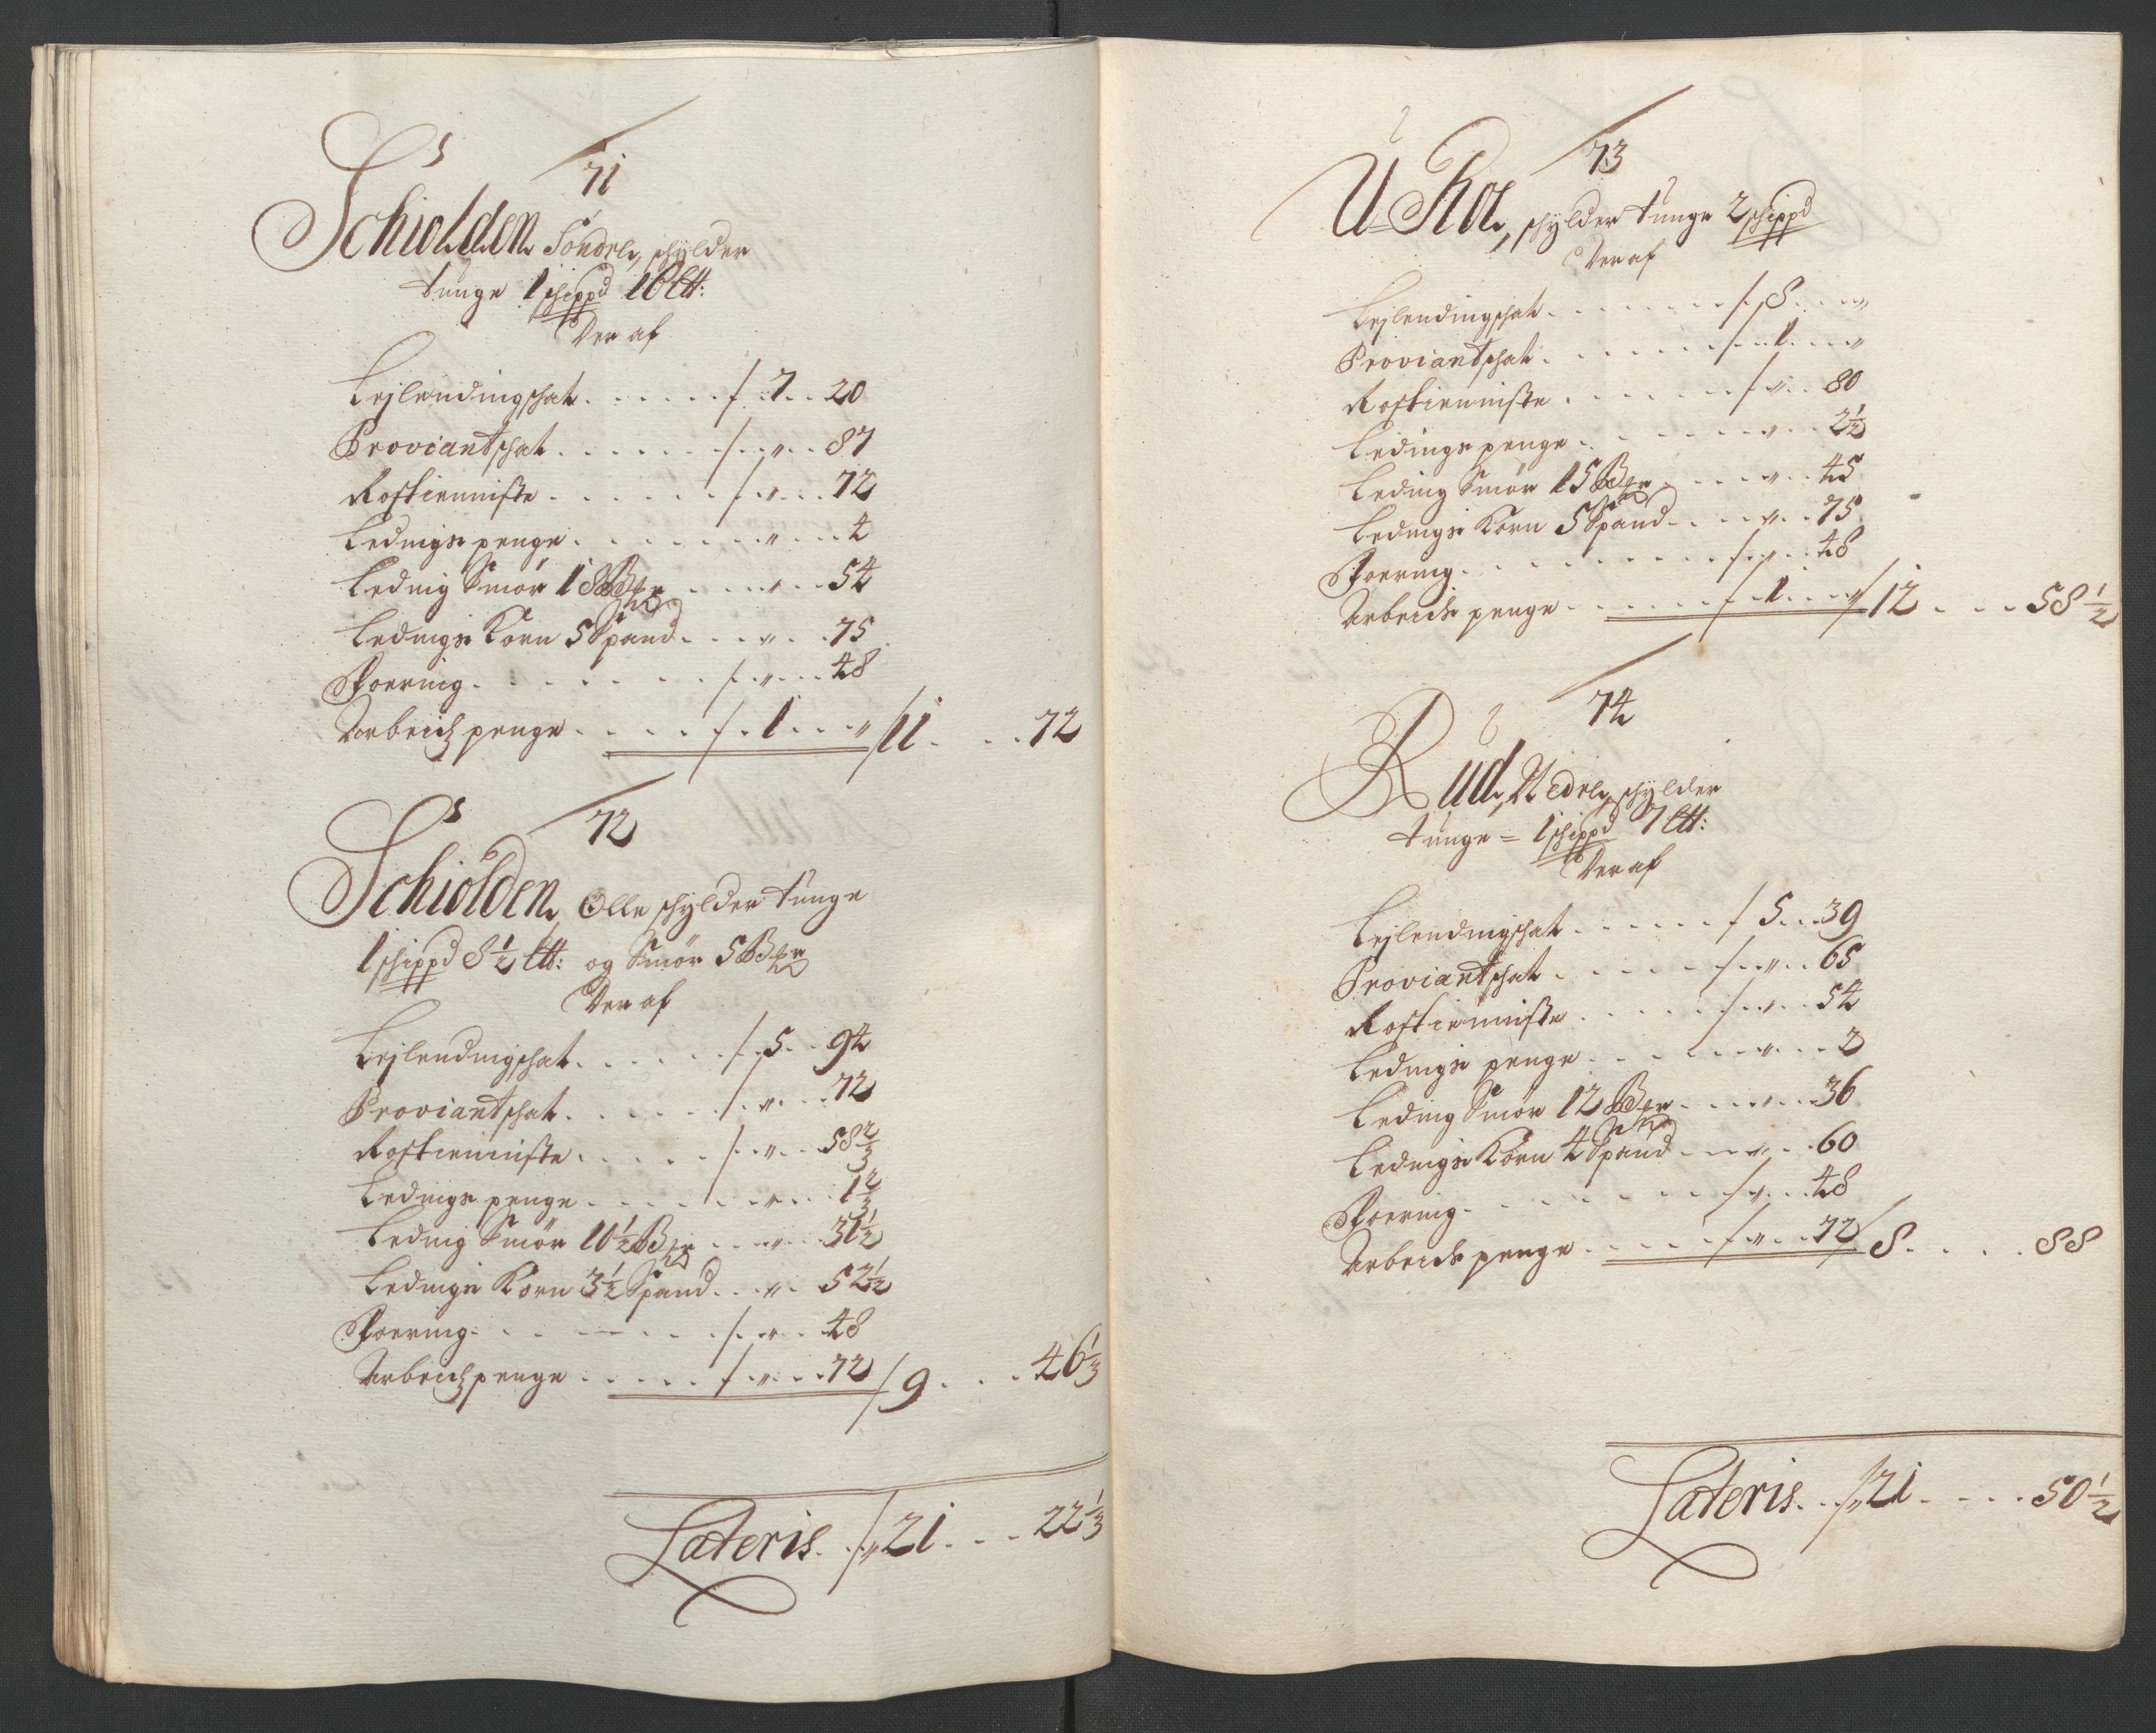 71
Schiolden Söndre, schylder
tunge 1 schippd 10 lb:
Der af
Leylendingschat . . . . . . / . 7 . . 20
Proviantschat . . . . . . / . " . . 87
Rostienniste . . . . . . / . " . . . 72
Ledings penge . . . . . . . " . . . 4
Leding Smör 18 Bpr . . . . " . . . 54
Ledings Korn 5 Spand . . . " . . . 75
Foering . . . . . . . / . " . . . 48
Arbeidz penge . . . . . / . 1 . . . " / 11 . . . . 72
72
Schiolden Olle schylder tunge
1 schippd 8½ lb: og Smör 5 Bpr
Der af
Leylendingschat . . . . . / . 5 . . 94
Proviantschat . . . . . . / . " . . . 72
Rostienniste . . . . . . / . " . . 58⅔
Ledings penge . . . . . . . " . . . 1⅔
Leding Smör 10½ Bpr . . . " . . 31½
Ledings Korn 3½ Spand . . . " . . 52½
Foering . . . . . . . / . " . . 48
Arbeidz penge . . . . . / . " . . 72 / 9 . . . . 46⅓
Lateris . . / " 21 . . . 22⅓
73
U-Roe, schylder tunge 2 schippd
Der af
Leylendingschat . . . . . . . / . 8 . . . "
Proviantschat . . . . . . / . . 1 . . . "
Rostienniste . . . . . . / " . . 80
Ledings penge . . . . . . . " . . 2½
Leding Smör 15 Bpr . . . . " . . 45
Ledings Korn 5 Spand . . . . " . . 75
Foering . . . . . . . . / . " . . 48
Arbeids penge . . . . . . / . 1 . . . " / 12 . . . . 58½
74
Rud, Nedre, schylder
tunge = 1 schippd 7 lb:
Der af
Leylendingschat . . . . . . / 5 . . . 39
Proviantschat . . . . . . / . . " . . 65
Rostienniste . . . . . . / . . " . . . 54
Ledings penge . . . . . . . " . . . 2
Leding Smör 12 Bpr . . . . " . . . 36
Ledings Korn 4 Spand . . . " . . . 60
Foering . . . . . . . / . " . . . 48
Arbeids penge . . . . . / . " . . 72 / 8 . . . . . 88
Lateris . . / " 21 . . . . . 50½